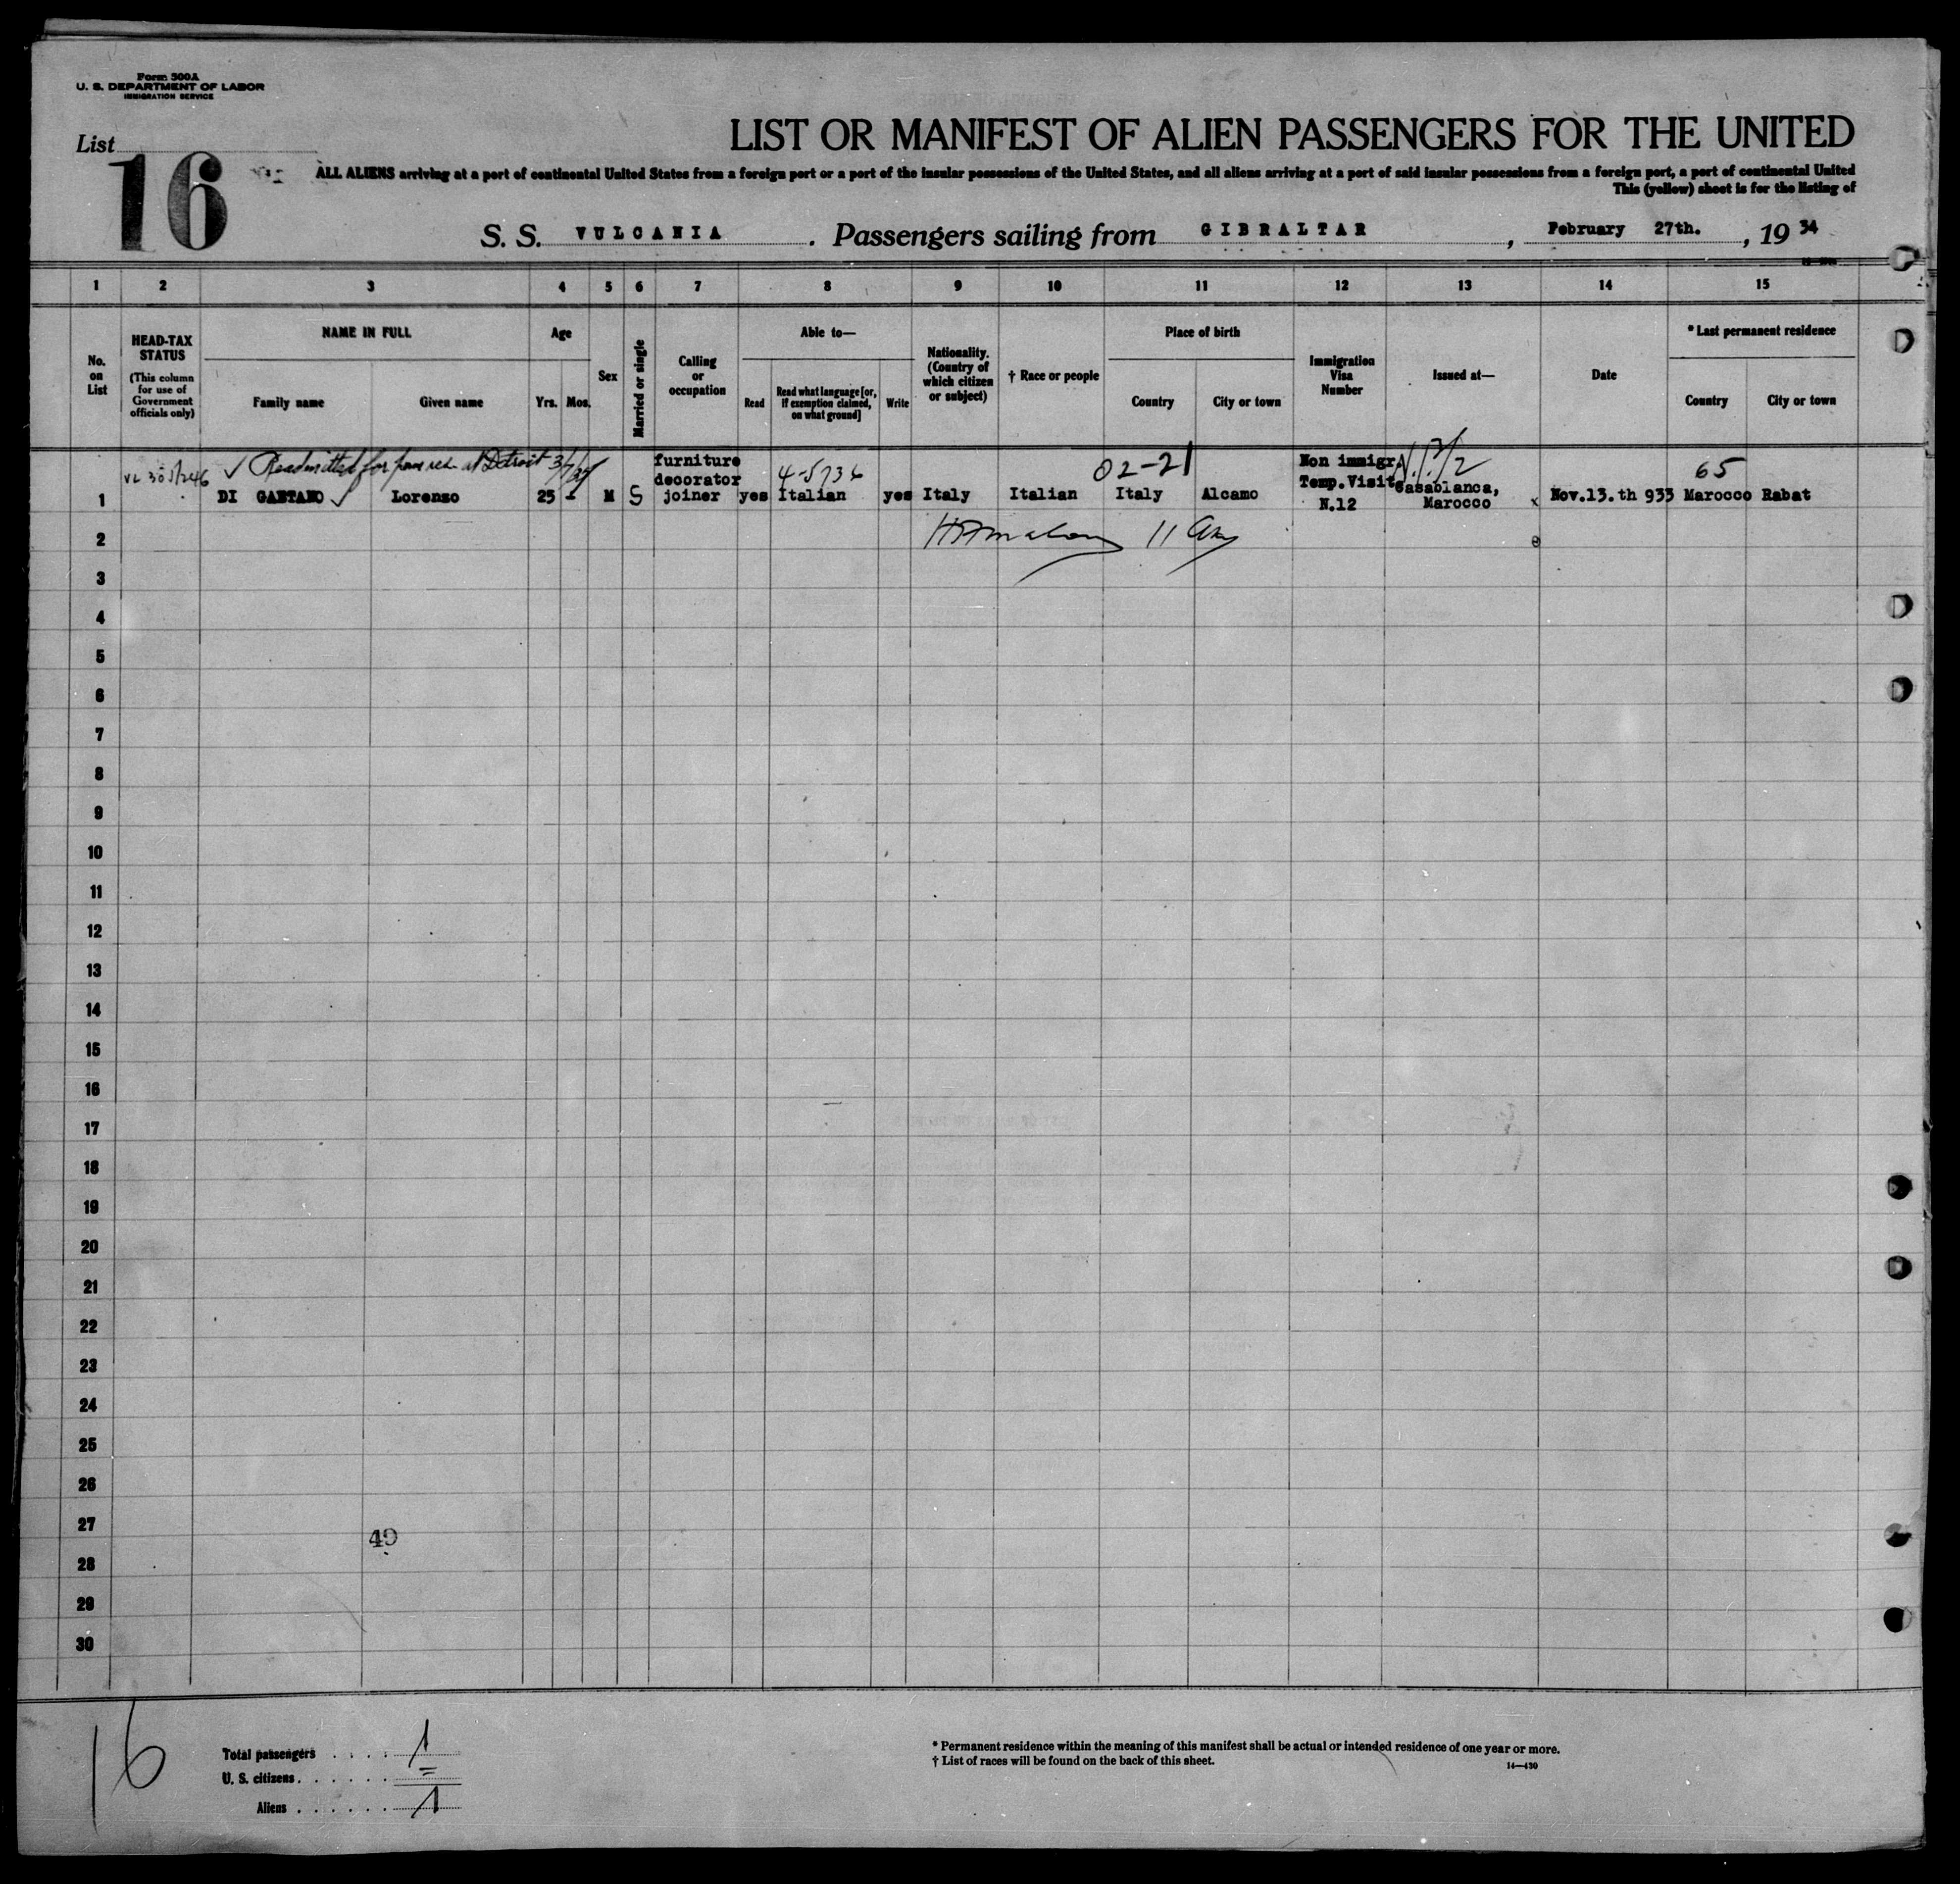 Form 500A
U. S. DEPARTMENT OF LABOR
IMMIGRATION SERVICE
List
16
LIST OR MANIFEST OF ALIEN PASSENGERS FOR THE UNITED
ALL ALIENS arriving at a port of continental United States from a foreign port or a port of the insular possessions of the United States, and all aliens arriving at a port of said insular possessions from a foreign port, a port of continental United
This (yellow) sheet is for the listing of
S. S. VULCANIA . Passengers sailing from GIBRALTAR , February 27th. , 19 34
1 2 3 4 5 6 7 8 9 10 11 12 13 14 15
No. on List
HEAD-TAX STATUS
(This column for use of Government officials only)
NAME IN FULL
Family name
Given name
Age
Yrs. Mos.
Sex
Married or single
Calling or occupation
Able to—
Read
Read what language [or, if exemption claimed, on what ground]
Write
Nationality. (Country of which citizen or subject)
† Race or people
Place of birth
Country
City or town
Immigration Visa Number
Issued at—
Date
* Last permanent residence
Country
City or town
Readmitted for perm res. at Detroit
02-21
65
1 DI GAETANO Lorenzo 25 M S furniture decorator joiner yes Italian yes Italy Italian Italy Alcamo Non immigr. Temp.Visit N.12 Casablanca, Marocco Nov.13.th 933 Marocco Rabat
2
3
4
5
6
7
8
9
10
11
12
13
14
15
16
17
18
19
20
21
22
23
24
25
26
27
49
28
29
30
16
Total passengers . . . . 1
U. S. citizens . . . . . . =
Aliens . . . . . . 1
* Permanent residence within the meaning of this manifest shall be actual or intended residence of one year or more.
† List of races will be found on the back of this sheet.
14—430